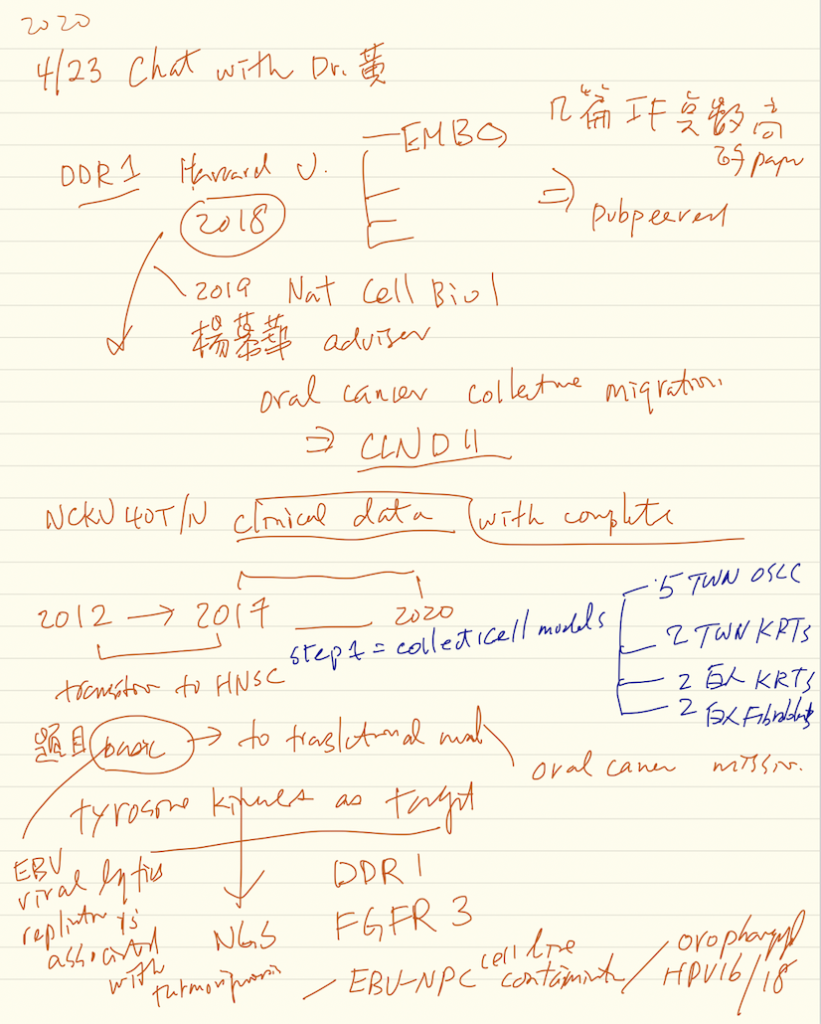 2020
4/23 Chat with Dr. 黃
几篇 IF 點數高
的 paper
EMBO
DDR1 Harvard U.
2018
⇒ pubpeered
2019 Nat Cell Biol
楊慕華 adviser
oral cancer collective migration.
⇒ CCND11
NCKU 40T/N clinical data with complete
2012 → 2017 — 2020
step 1 = collect cell models
5 TWN OSCC
2 TWN KRTs
2 白人 KRTs
2 白人 Fibroblasts
transition to HNSC
題目 basic → to translational
oral cancer mission.
tyrosine kinases as target
EBV
viral lytic
replication is
associated
with
tumorigenesis
NGS
DDR1
FGFR3
EBV-NPC cell line
contaminate
oropharyngeal
HPV16/18